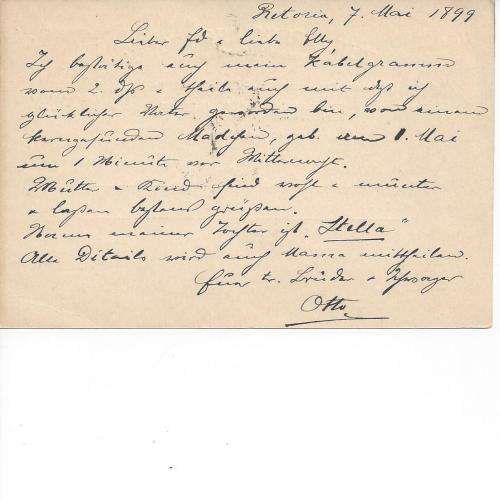 Pretoria, 7. Mai 1899
Lieber Ed & liebe Elly
Ich bestätige Euch mein Kabelgramm
vom 2. ds & theile Euch mit daß ich
glücklicher Vater geworden bin, von einem
kerngesunden Mädchen, geb. am 1. Mai
um 1 Minute vor Mitternacht.
Mutter & Kind sind wohl & munter
& laßen bestens grüßen.
Name meiner Tochter ist „Stella“
Alle Details wird Euch Mama mittheilen.
Euer tr. Bruder & Schwager
Otto